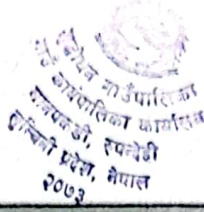 गाउँपालिका
गाउँ कार्यपालिका कार्यालय
रुपन्देही
लुम्बिनी प्रदेश, नेपाल
२०७३